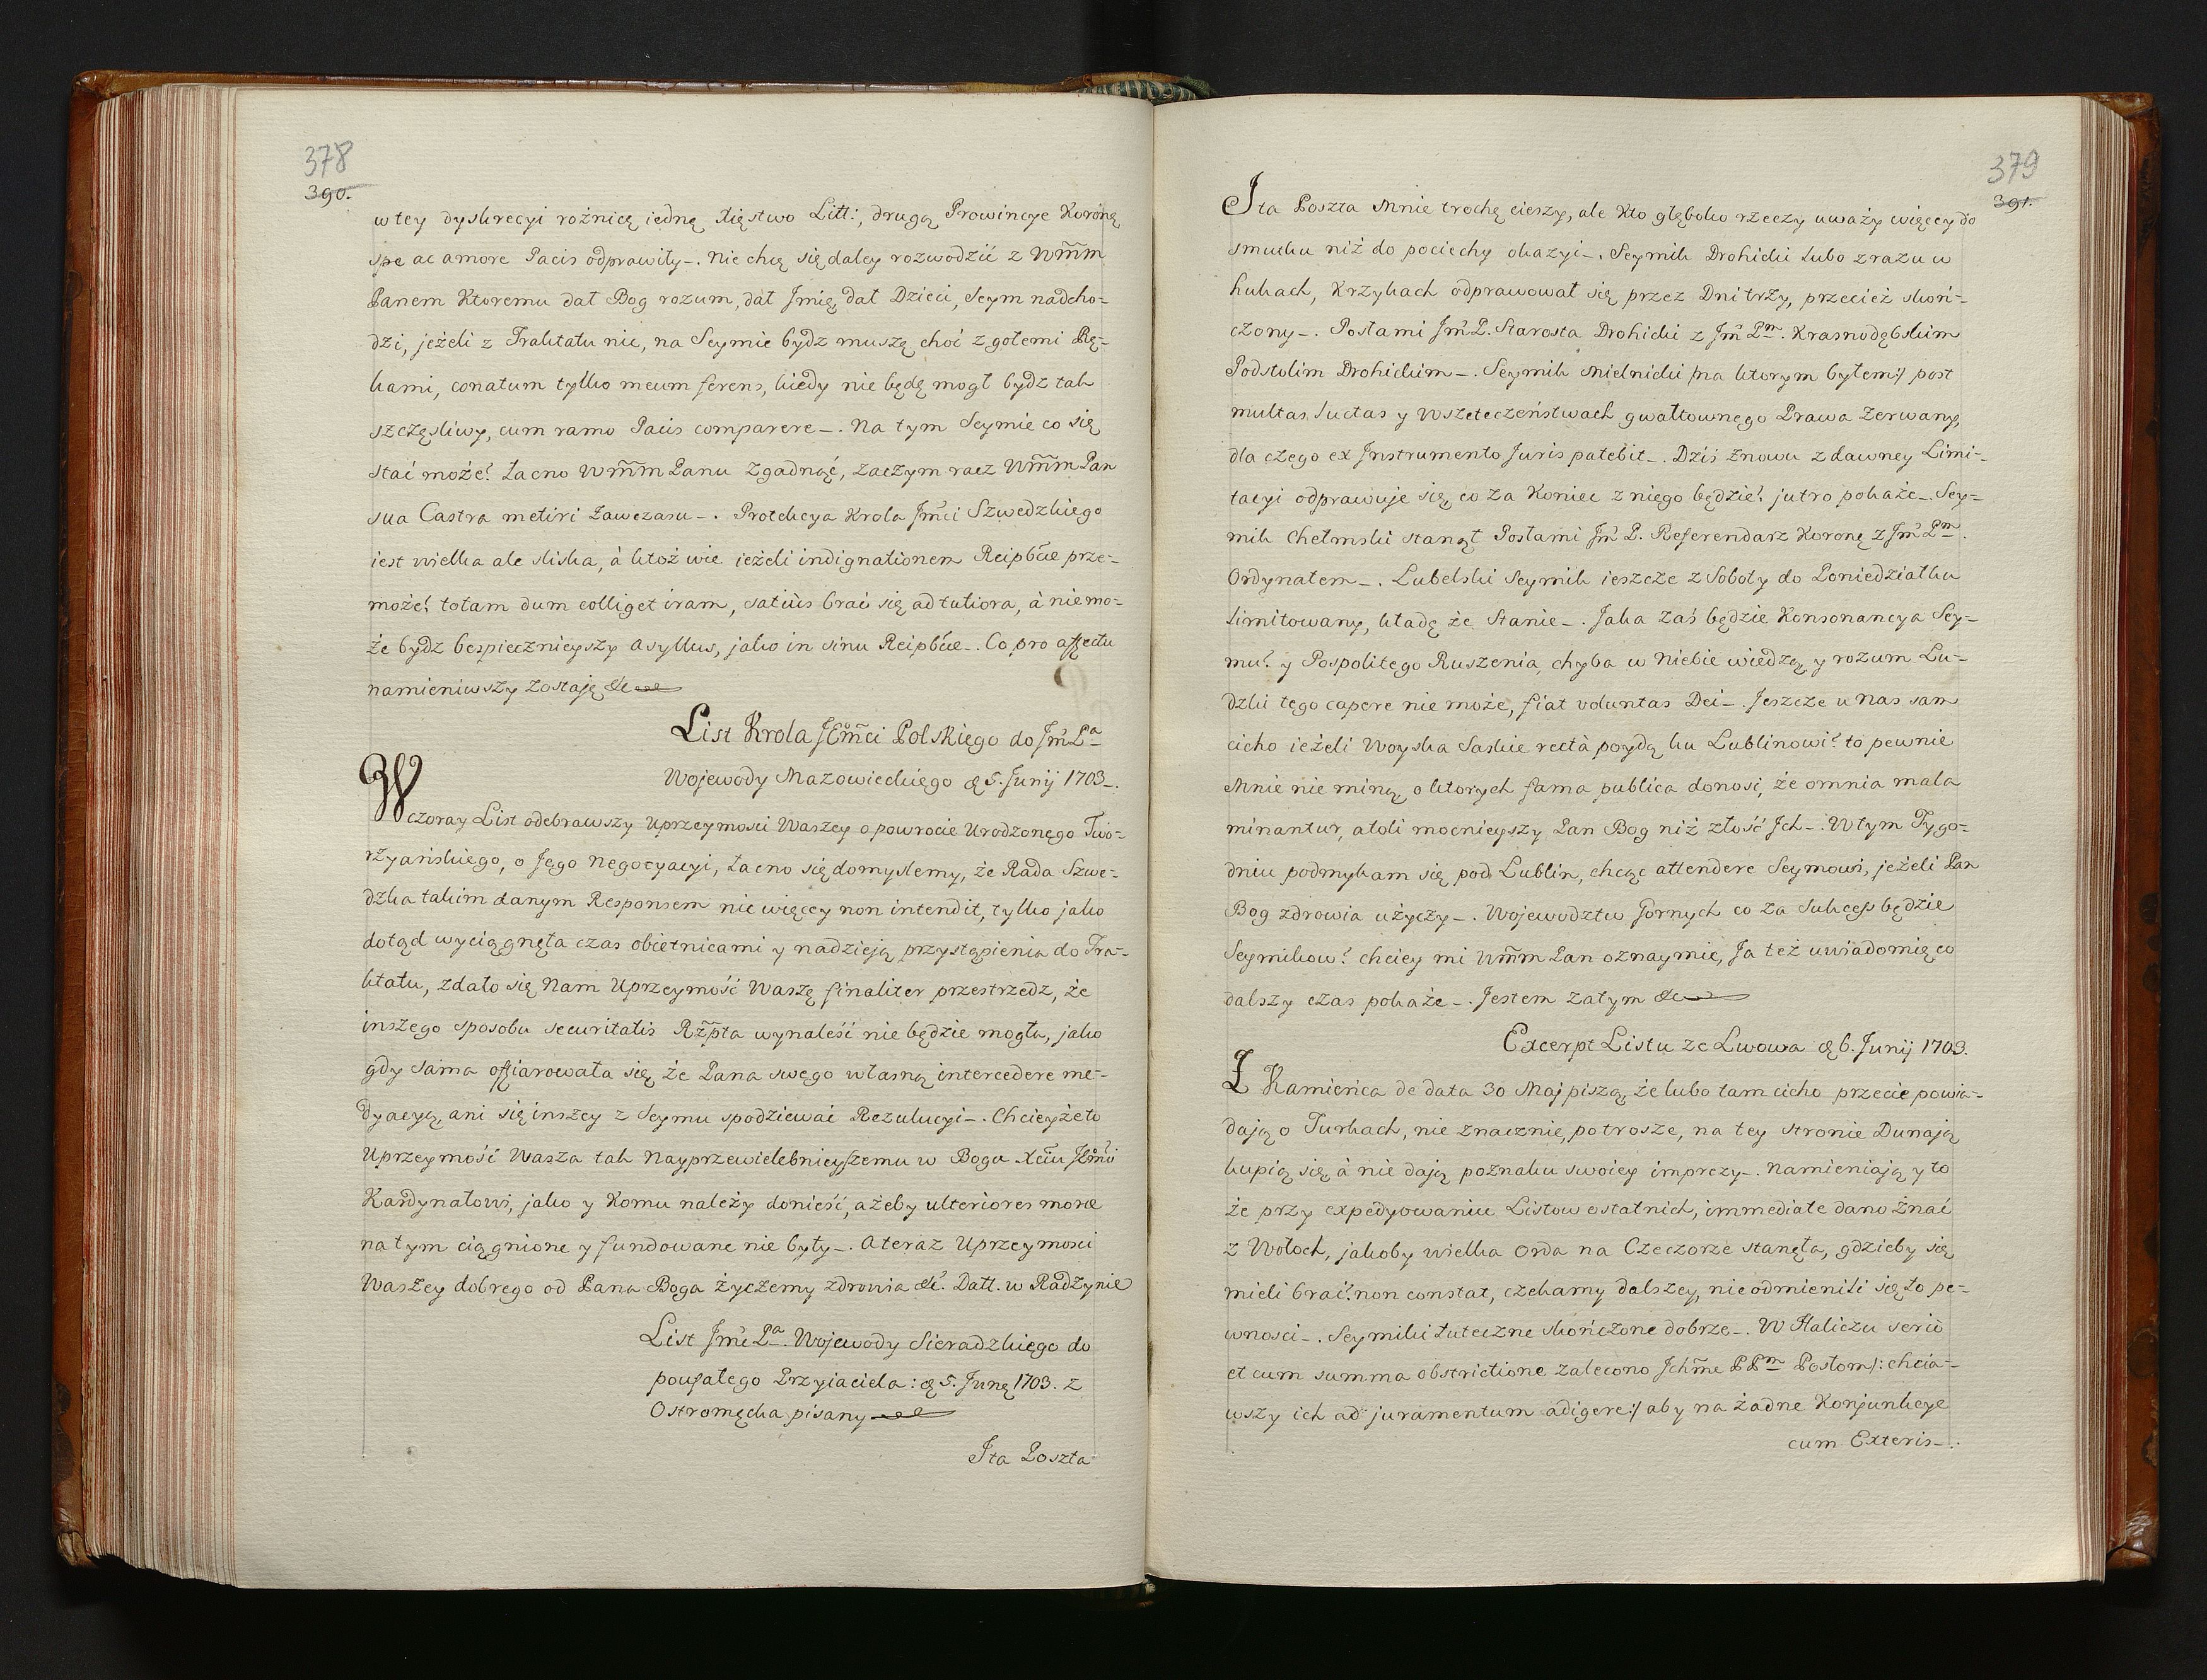 378
390.
w tey dyskrecyi rożnicę iednę Xięstwo Litt:, drugą Prowincye Koronę
spe ac amore Pacis odprawiły_. Nie chcę się daley rozwodzić z Wm̃m
Panem ktoremu dał Bog rozum, dał Jmię, dał Dzieci, Seym nadcho-
dzi, jeżeli z Traktatu nic, na Seymie bydz muszę choć z gołemi Rę-
kami, conatum tylko meum ferens, kiedy nie będę mogł bydz tak
szczęsliwy, cum ramo Pacis comparere_. Na tym Seymie co się
stać może? Łacno Wm̃m Panu zgadnąć, zaczym racz Wm̃m Pan
sua Castra metiri zawczasu_. Protekcya Krola Jm̃ci Szwedzkiego
iest wielka ale sliska, à ktoż wie ieżeli indignationem Reipb̃cæ prze-
może? totam dum colliget iram, satiùs brać się ad tutiora, à nie mo-
że bydz bespiecznieyszy Asyllus, jako in sinu Reipb̃cæ_. Co pro affectu
namieniwszy zostaję &c
List Krola JEm̃ci Polskiego do Jm̃ Pa
Wojewody Mazowieckiego d 5. Junij 1703_.
Wczoray List odebrawszy Uprzeymosci Waszey o powrocie Urodzonego Two-
rzyańskiego, o Jego Negocyacyi, łacno się domyslemy, że Rada Szwe-
dzka takim danym Responsem nic więcey non intendit, tylko jako
dotąd wyciągnęła czas obietnicami y nadzieją przystąpienia do Tra-
ktatu, zdało się Nam Uprzeymość Waszę finaliter przestrzedz, że
inszego sposobu securitatis Rz̃pta wynaleść nie będzie mogła, jako
gdy sama offiarowała się że Pana swego własną intercedere me-
dyacyą, ani się inszey z Seymu spodziewać Rezulucyi_. Chcieyże to
Uprzeymość Wasza tak Nayprzewielebnieyszemu w Bogu Xciu JEm̃ci
Kardynałowi, jako y komu należy donieść, ażeby ulteriores moræ
na tym ciągnione y fundowane nie były_. A teraz Uprzeymosci
Waszey dobrego od Pana Boga życzemy zdrowia &c. Datt. w Radzynie
List Jm̃ci Pa. Wojewody Sieradzkiego do
poufałego Przyiaciela: d 5. Junę 1703. z
Ostromęcka pisany
Jta Poszta
379
391.
Jta Poszta Mnie trochę cieszy, ale kto głęboko rzeczy uważy więcey do
smutku niż do pociechy okazyi_. Seymik Drohicki lubo zrazu w
hukach, krzykach odprawował się przez Dni trzy, przecież skoń-
czony_. Posłami Jm̃ P. Starosta Drohicki z Jm̃ Pm. Krasnodębskim
Podstolim Drohickim_. Seymik Mielnicki /:na ktorym byłem:/ post
multas luctas y Wszeteczeństwach gwałtownego Prawa zerwany,
dla czego ex Instrumento Juris patebit_. Dziś znowu z dawney Limi-
tacyi odprawuje się, co za koniec z niego będzie? jutro pokaże_. Sey-
mik Chełmski stanął Posłami Jm̃ P. Referendarz Koronę z Jm̃ Pm.
Ordynatem_. Lubelski Seymik ieszcze z Soboty do Poniedziałku
limitowany, kładę że stanie_. Jaka zaś będzie Konsonancya Sey-
mu? y Pospolitego Ruszenia, chyba w Niebie wiedzą, y rozum Lu-
dzki tego capere nie może, fiat voluntas Dei_. Jeszcze u Nas sam
cicho ieżeli Woyska Saskie rectà poydą ku Lublinowi? to pewnie
Mnie nie miną, o ktorych fama publica donosi, że omnia mala
minantur, atoli mocnieyszy Pan Bog niż złość Jch_. W tym Tygo-
dniu podmykam się pod Lublin, chcąc attendere Seymowi, jeżeli Pan
Bog zdrowia użyczy_. Wojewodztw Gornych co za sukces będzie
Seymikow? chciey mi Wm̃m Pan oznaymić, Ja też uwiadomię co
dalszy czas pokaże_. Jestem zatym &c
Excerpt Listu ze Lwowa d 6. Junij 1703.
Z Kamieńca de data 30 Maj piszą, że lubo tam cicho przecie powia-
dają o Turkach, nie znacznie, potrosze, na tey stronie Dunaju
kupią się, à nie dają poznaku swoiey imprezy_. Namieniają y to
że przy expedyowaniu Listow ostatnich, immediate dano znać
z Wołoch, jakoby wielka Orda na Czeczorze stanęła, gdzieby się
mieli brać? non constat, czekamy dalszey, nie odmienili się to pe-
wnosci_. Seymiki tuteczne skończone dobrze_. W Haliczu seriò
et cum summa obstrictione zalecono Jchm̃c PPm Posłom /: chcia-
wszy ich ad juramentum adigere:/ aby na żadne Konjunkcye
cum Exteris_.